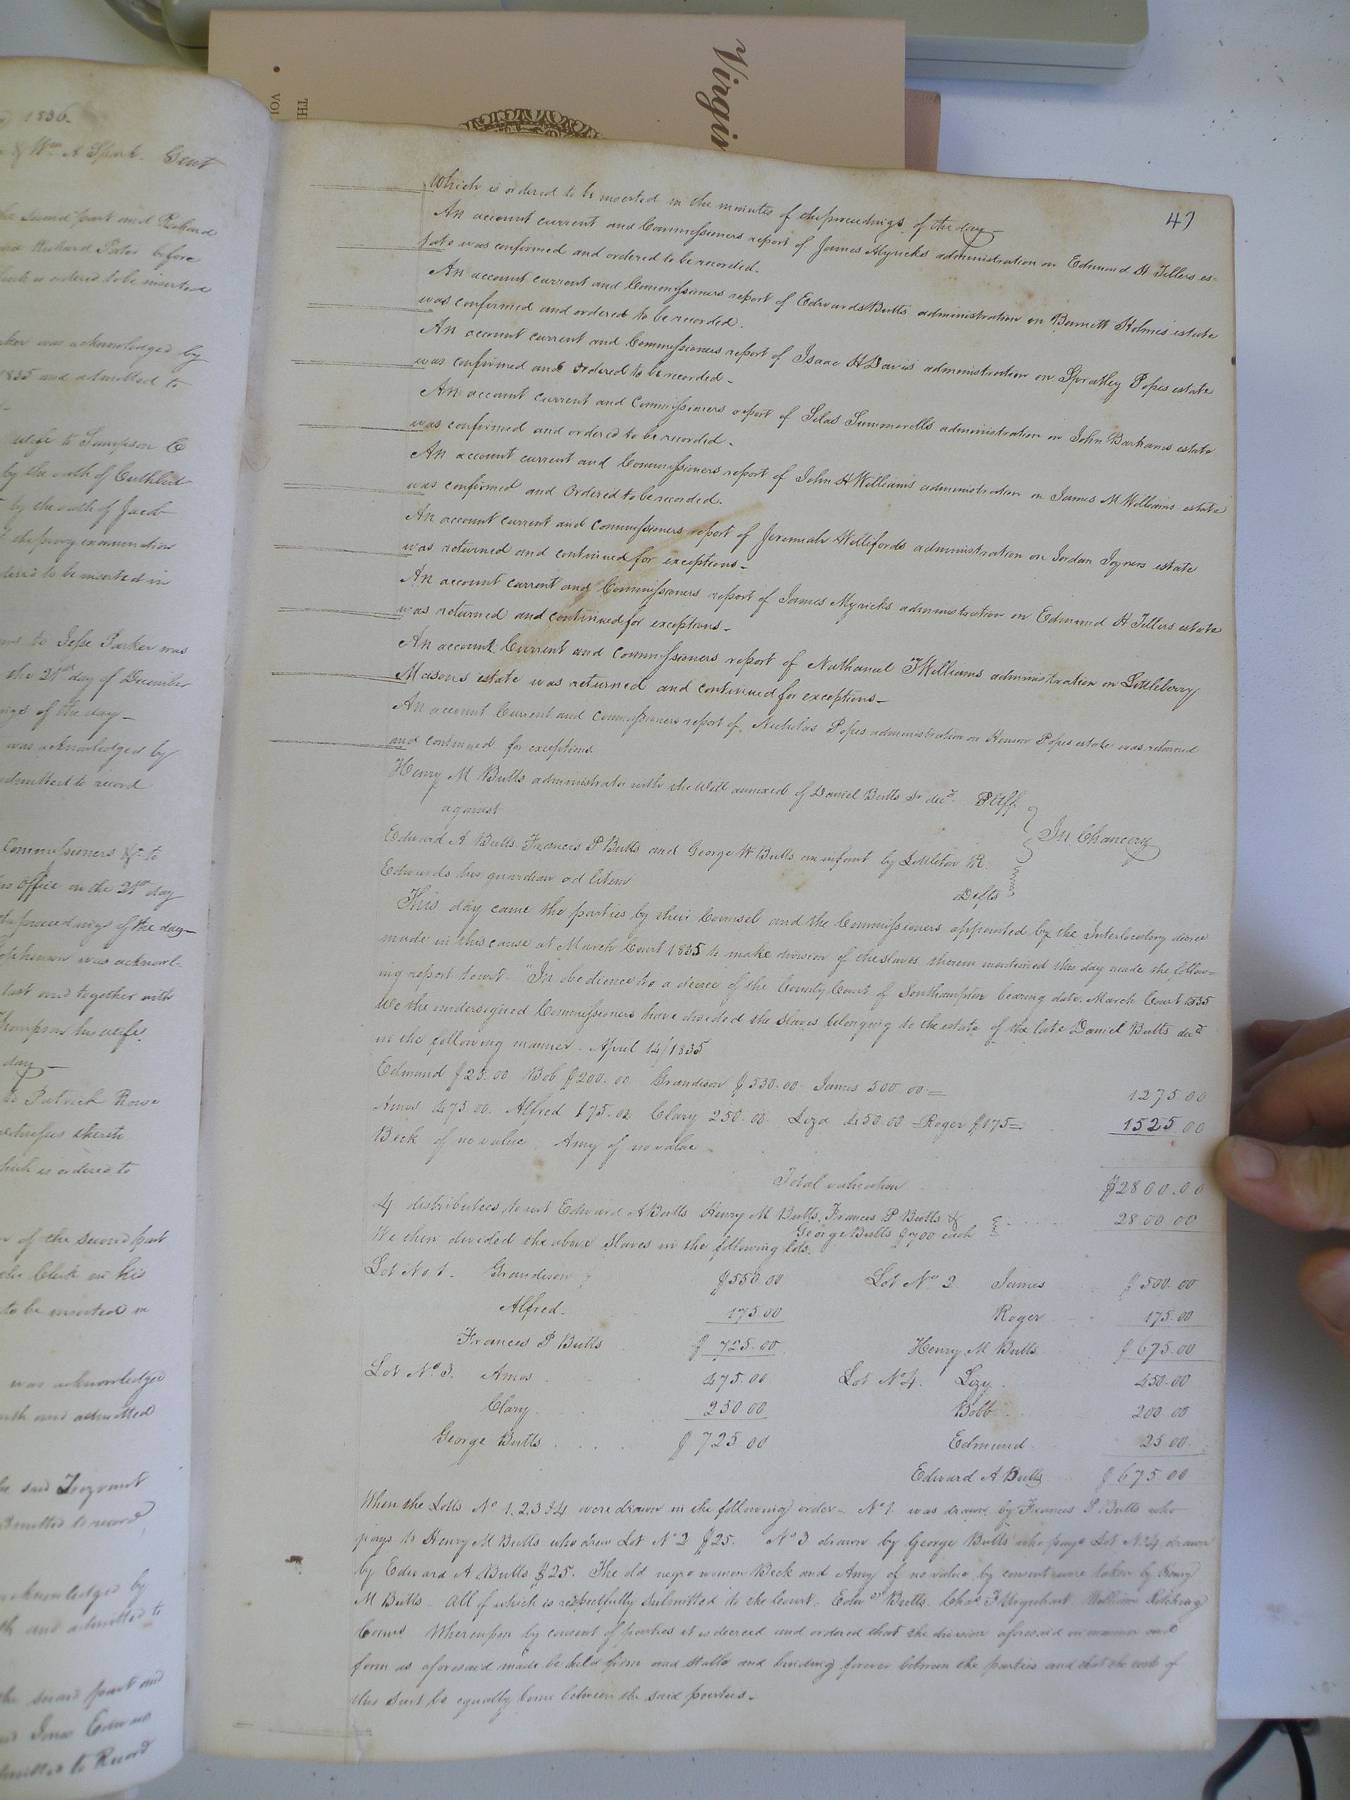 1836.
& Wm A Spark. Gent
the second part and Richard
before
is ordered to be inserted
was acknowledged by
1835 and admitted to
wife to Sampson C
by the oath of Cuthbert
by the oath of Jacob
the privy examination
ordered to be inserted in
to Jesse Parker was
the 21st day of December
of the day
was acknowledged by
admitted to record
Commissioners &c to
his office on the 21st day
the proceedings of the day
was acknowl-
last and together with
Thompson his wife
day
to Patrick Rowe
witnesses thereto
which is ordered to
of the second part
the Clerk in his
to be inserted in
was acknowledged
and admitted
the said Trezvant
admitted to record
acknowledged by
and admitted to
the second part and
admitted to Record
THE
VOL
Virgin
47
Which is ordered to be inserted in the minutes of the proceedings of the day
An account current and Commissioners report of James Myricks administration on Edmund H Tillers es-
tate was confirmed and ordered to be recorded.
An account current and Commissioners report of Edwards Butts administration on Bennett Holmes estate
was confirmed and ordered to be recorded.
An account current and Commissioners report of Isaac H Davis administration on Spratley Popes estate
was confirmed and ordered to be recorded
An account current and Commissioners report of Silas Summerells administration on John Barhams estate
was confirmed and ordered to be recorded
An account current and Commissioners report of John H Williams administration on James M Williams estate
was confirmed and Ordered to be recorded.
An account current and Commissioners report of Jeremiah Wellifords administration on Jordan Joyners estate
was returned and continued for exceptions
An account current and Commissioners report of James Myricks administration on Edmund H Tillers estate
was returned and continued for exceptions
An account Current and Commissioners report of Nathaniel T Williams administration on Littleberry
Masons estate was returned and continued for exceptions
An account Current and Commissioners report of Nicholas Popes administration on Henson Popes estate was returned
and continued for exceptions
Henry M Butts administrator with the Will annexed of Daniel Butts Sr decd. Pltff
against
In Chancery
Edward A Butts Francis P Butts and George W Butts an infant by Littleton R.
Edwards his guardian ad litem
Defts
This day came the parties by their Counsel and the Commissioners appointed by the Interlocutory decree
made in this cause at March Court 1835 to make division of the slaves therein mentioned this day made the follow-
ing report towit. "In obedience to a decree of the County Court of Southampton bearing date March Court 1835
We the undersigned Commissioners have divided the slaves belonging to the estate of the late Daniel Butts decd
in the following manner. April 14/1835
Edmund $25.00 Bob $200.00 Grandison $550.00 James 500.00 = 1275.00
Amos 475.00. Alfred 175.00 Clary 250.00 Liza 450.00 - Roger $175 = 1525.00
Beck of no value Amy of no value
Total valuation $2800.00
4 distributees, to wit Edward A Butts Henry M Butts, Francis P Butts &
George Butts $700 each 2800.00
We then divided the above slaves in the following lots.
Lot No 1. Grandison $550.00 Lot No 2 James $500.00
Alfred. 175.00 Roger 175.00
Francis P Butts $725.00 Henry M Butts $675.00
Lot No 3. Amos 475.00 Lot No 4. Lizy 450.00
Clary 250.00 Bobb 200 00
George Butts $725 00 Edmund 25 00
Edward A Butts $675 00
When the Lotts No 1, 2, 3 & 4 were drawn in the following order No 1. was drawn by Francis P. Butts who
pays to Henry M Butts who drew Lot No 2 $25. No 3 drawn by George Butts who pays Lot No 4 drawn
by Edward A Butts $25. The old negro women Beck and Amy of no value by consent were taken by Henry
M Butts. All of which is respectfully submitted to the Court. Edwd Butts Chas F Urquhart William
Comrs Whereupon by consent of parties it is decreed and ordered that the division aforesaid in manner and
form as aforesaid made be held firm and stable and binding forever between the parties and that the costs of
this suit be equally borne between the said parties.